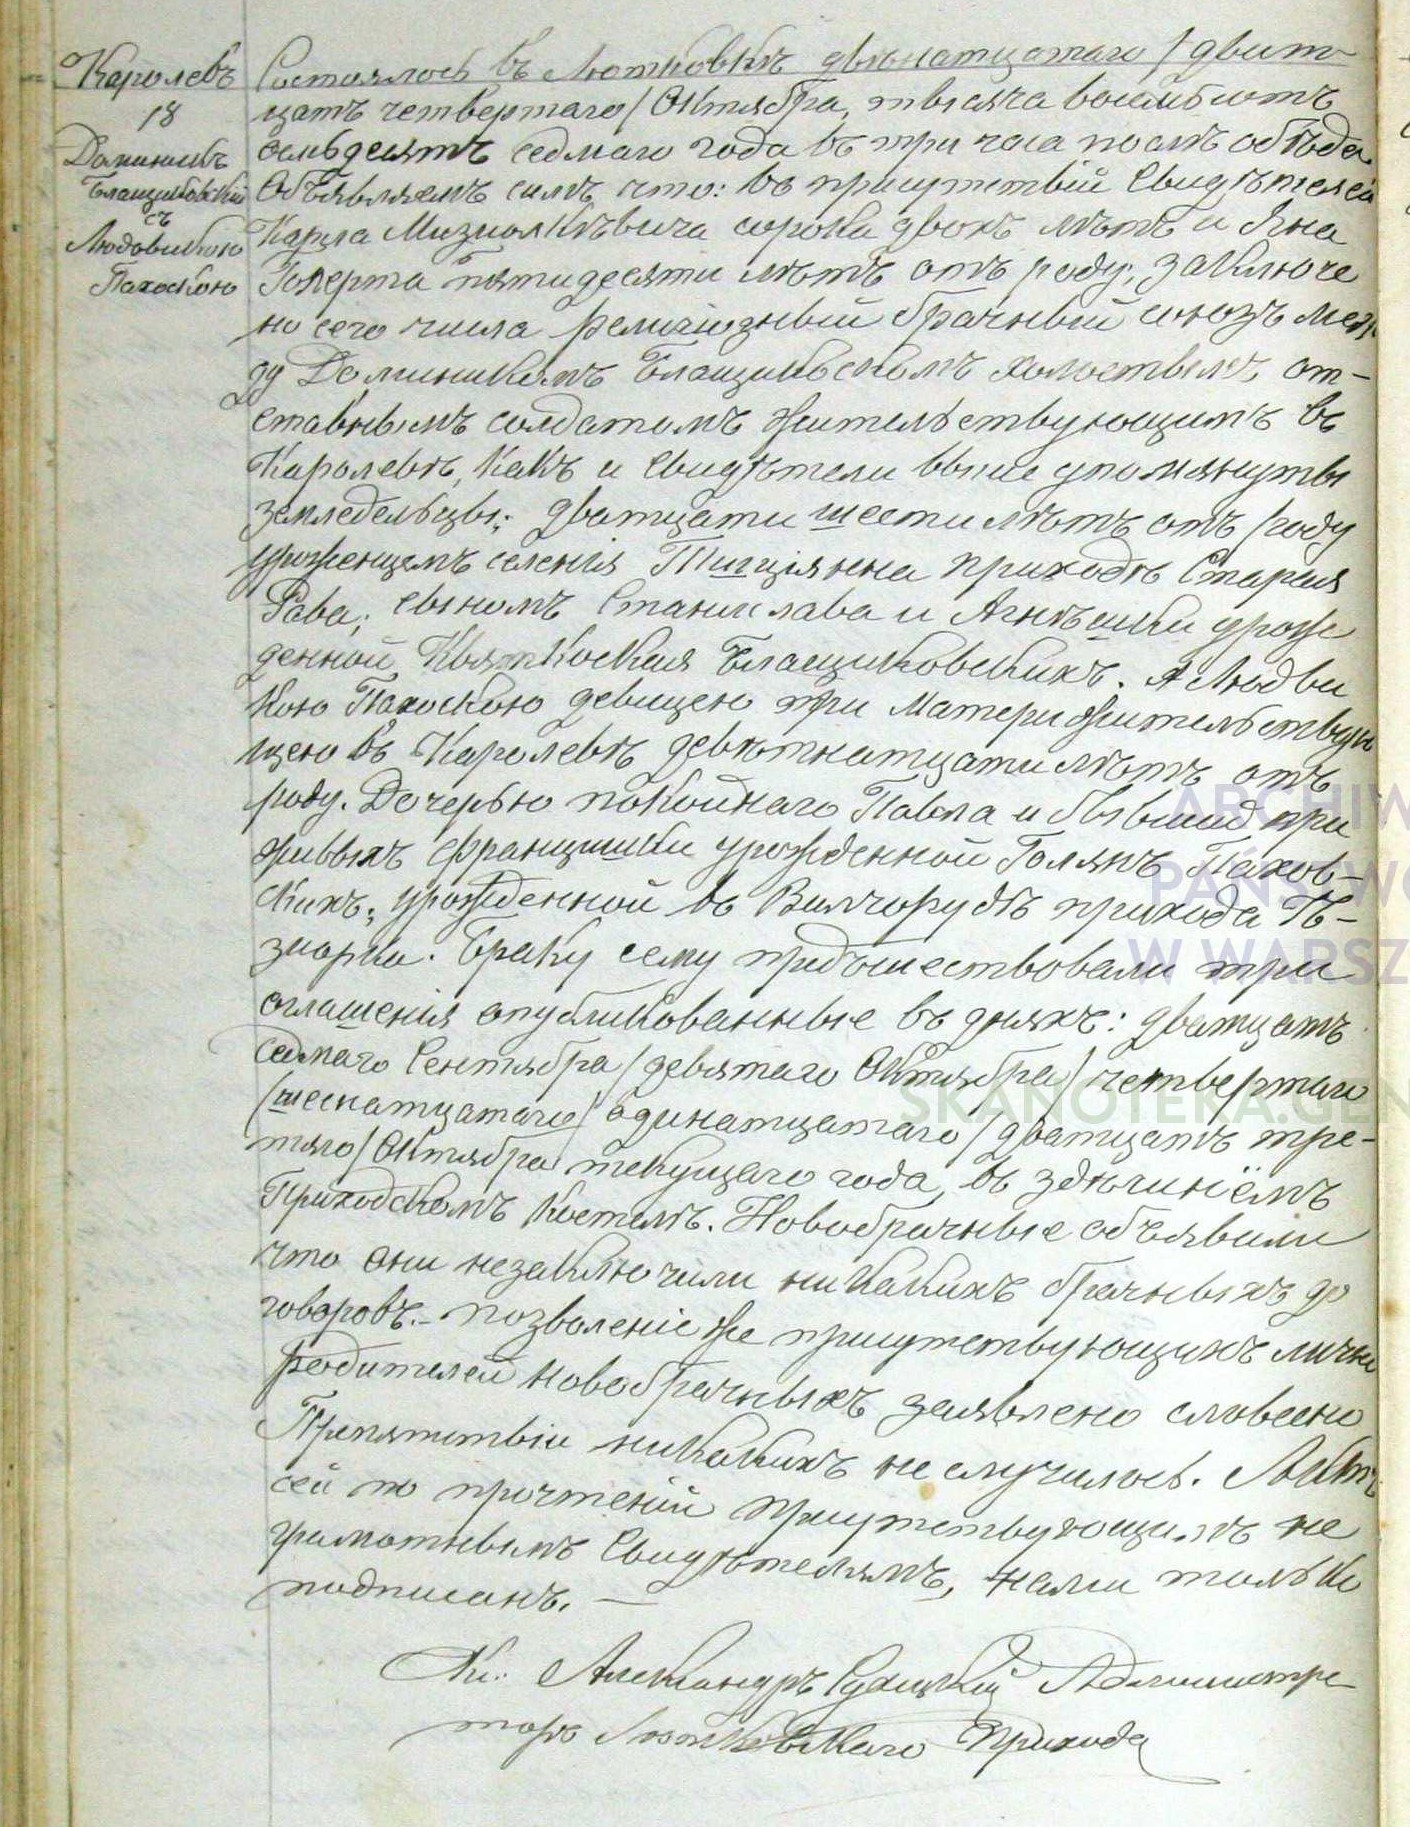 Каролевъ
18
Доминикъ
Блащиковскій
съ
Людовикою
Паховскою
Состоялось въ Лютковкѣ двѣнатцатаго /двит-
цать четвертаго/ Октября, тысяча восимьсотъ
семьдесятъ седмаго года въ три часа послѣ обѣда
Объявляемъ симъ, что: въ присутствіи Свидѣтелей
Карла Мизиолкѣвича сорока двохъ лѣтъ и Яна
Гоперта пятидесяти лѣтъ отъ роду; заключе
но сего числа религіозный брачный союзъ меж
ду Доминикомъ Блащиковскомъ холостымъ от-
ставнымъ солдатомъ жительствующимъ въ
Каролевѣ, какъ и Свидѣтели выше упомянуты
земледельцы; дватцати шести лѣтъ отъ роду
урожнцемъ селенія приходѣ Старая
Рава; сыномъ Станислава и Агнѣшки урож
денной Квятковская Блащиковскихъ. А Людви
кою Паховскою девицею при Матери жительствую
щею въ Каролевѣ девѣтнатцати лѣтъ отъ
роду. Дочерью покойнаго Павла и бывшид при
живыхъ Францишки урожденной Голянъ Пахов-
скихъ; урожденной въ Вилчорудѣ прихода Пѣ-
зиорка. Браку сему предъшествовали три
оглашенія опубликованные въ дняхъ: дватцать
седмаго Сентября /девятаго Октября/ четвертаго
/шеснатцатаго/ одинатцатаго /дватцать тре-
тяго/ Октября текущаго года, въ здѣшнiёмъ
Приходскомъ Костелѣ. Новобрачные объявили
что они незаключили никакихъ брачныхъ до
говоровъ.- позволеніе же присутствующихъ лично
родителей новобрачныхъ заявлено словесно
Препятствіи никакихъ не случилось. Актъ
сей по прочтеніи присутствующимъ не
грамотнымъ Свидѣтелямъ, нами только
подписанъ. —
Кс: Александръ Администра
торъ Лютковскаго Прихода